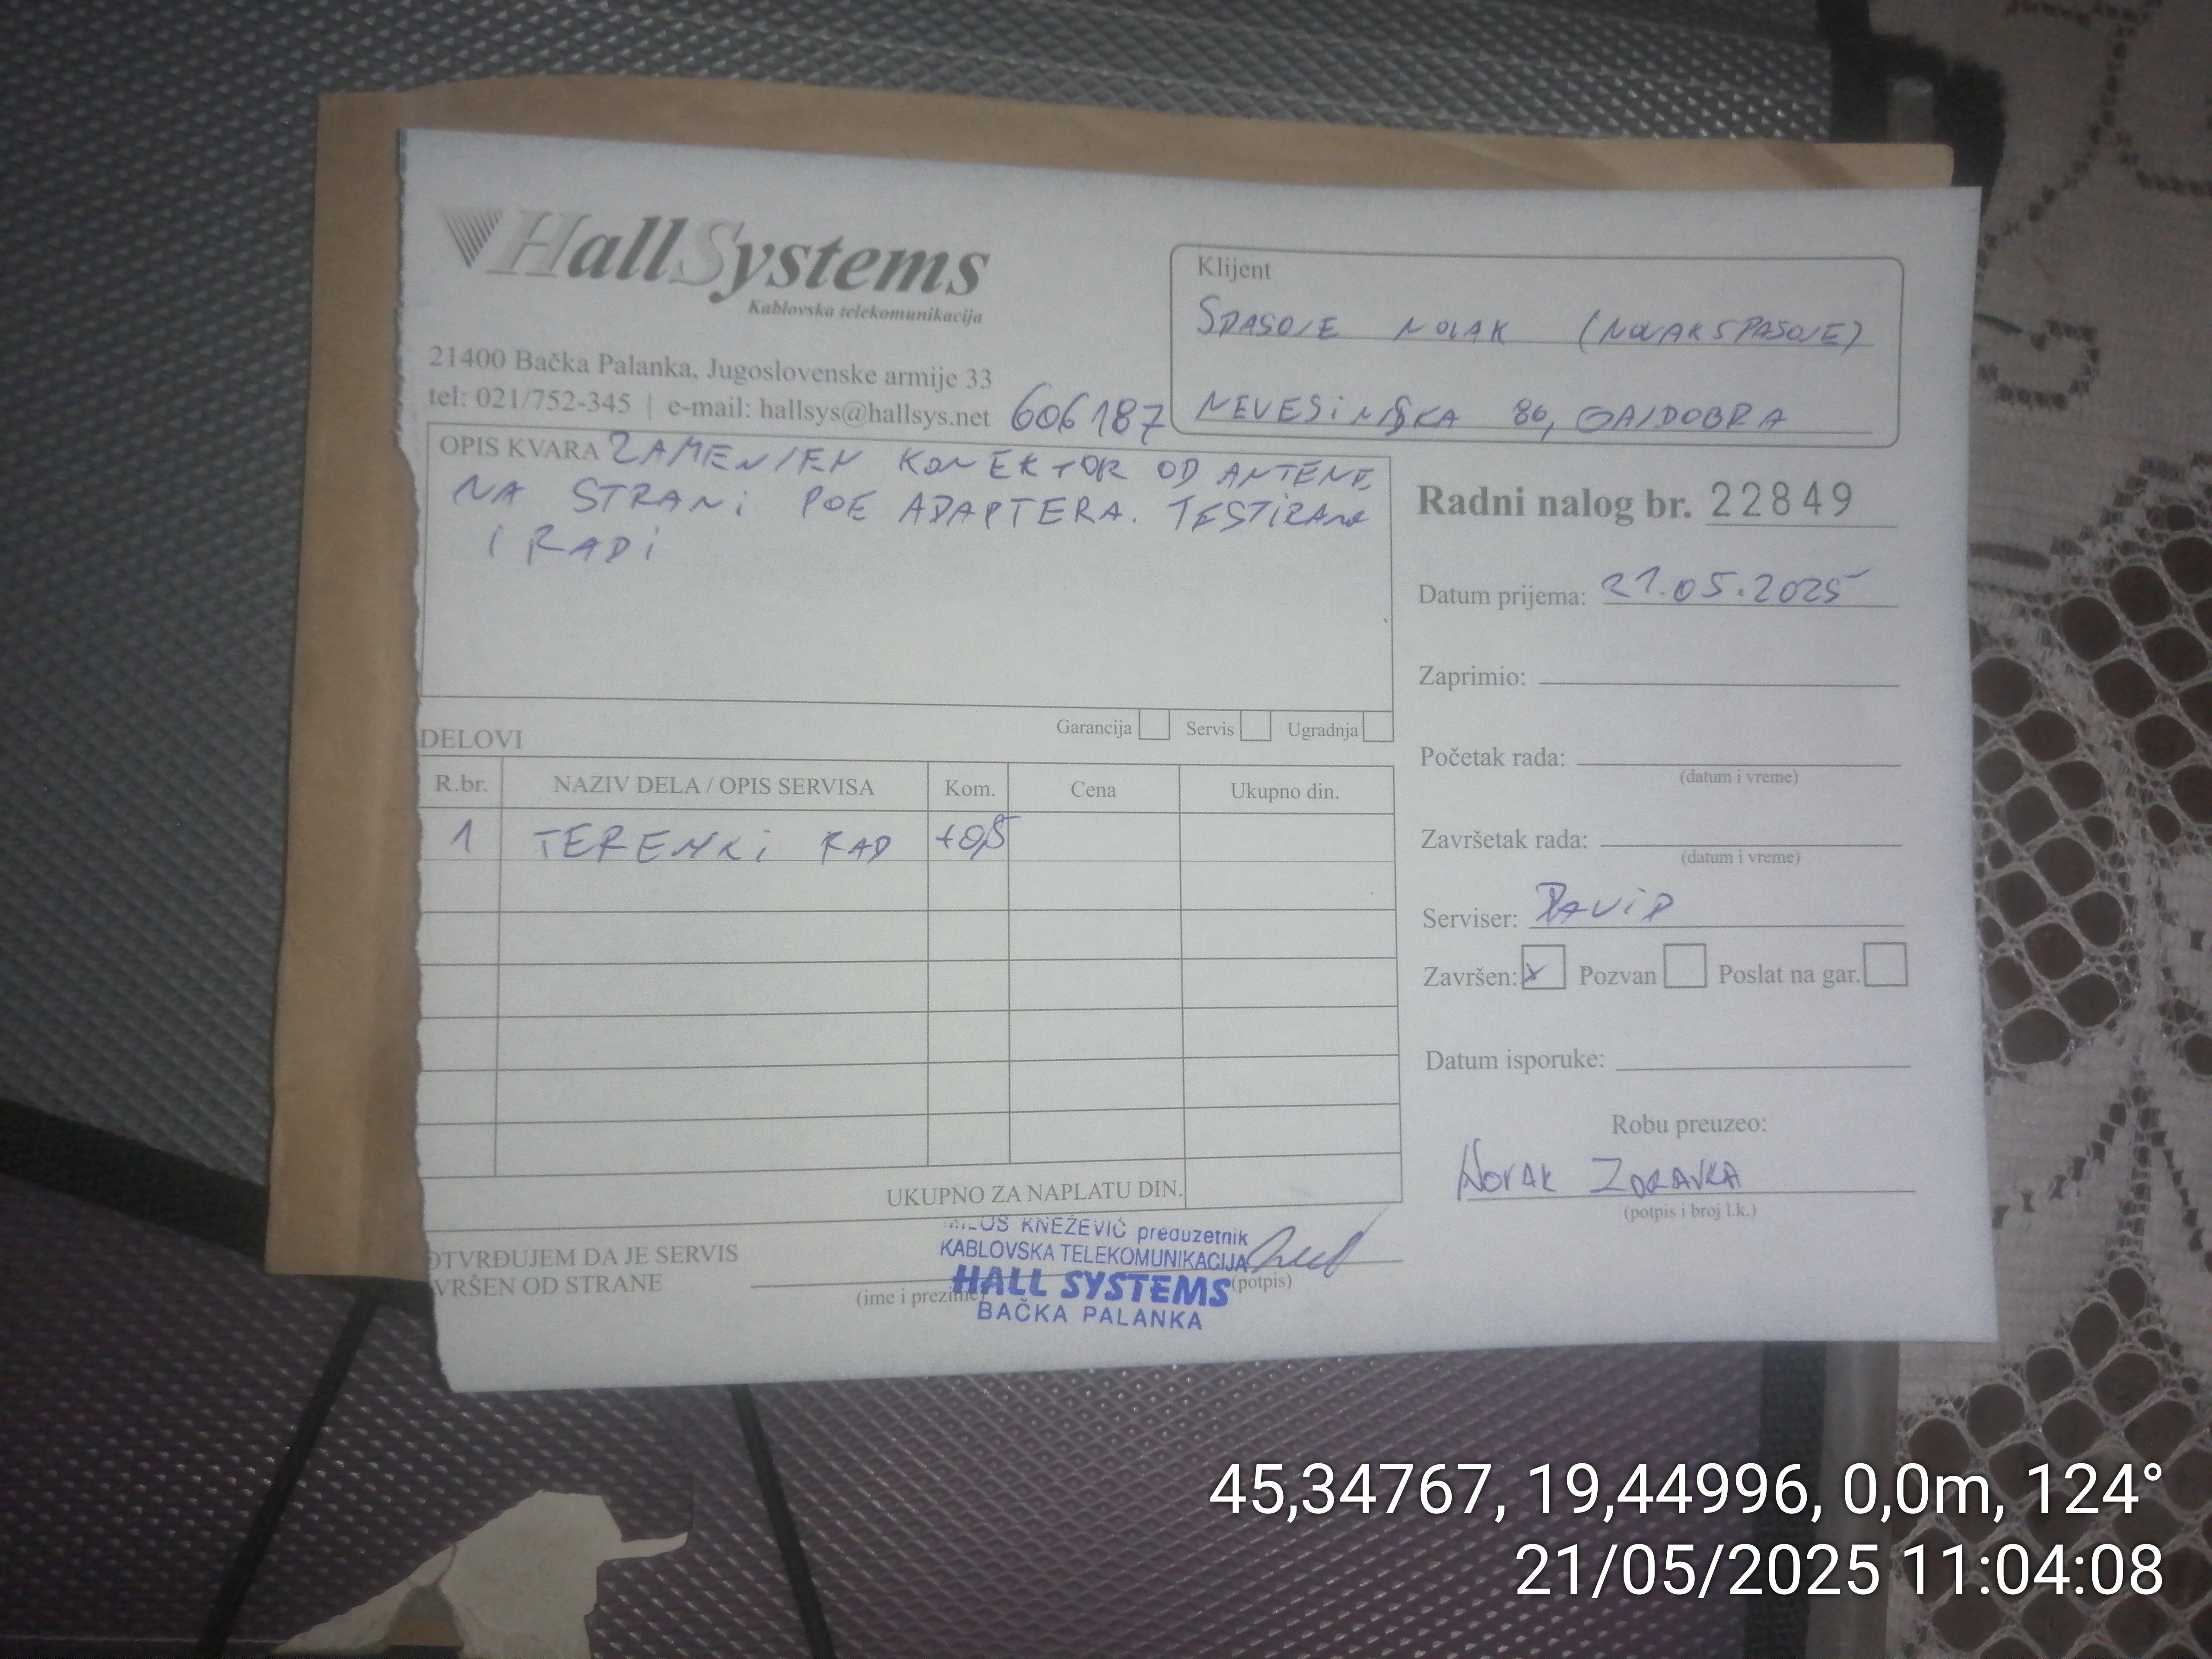 HallSystems
Kablovska telekomunikacija
21400 Bačka Palanka, Jugoslovenske armije 33
tel: 021/752-345 | e-mail: hallsys@hallsys.net
606187
Klijent
SPASOJE NOVAK (NOVAKSPASOJE)
NEVESINJSKA 86, GAJDOBRA
OPIS KVARA ZAMENJEN KONEKTOR OD ANTENE
NA STRANI POE ADAPTERA. TESTIRANO
I RADI
Garancija Servis Ugradnja
DELOVI
R.br. NAZIV DELA / OPIS SERVISA Kom. Cena Ukupno din.
1 TERENKI RAD +0,5
UKUPNO ZA NAPLATU DIN.
OTVRĐUJEM DA JE SERVIS
VRŠEN OD STRANE
(ime i prezime)
(potpis)
MILOŠ KNEŽEVIĆ preduzetnik
KABLOVSKA TELEKOMUNIKACIJA
HALL SYSTEMS
BAČKA PALANKA
Radni nalog br. 22849
Datum prijema: 21.05.2025
Zaprimio:
Početak rada:
(datum i vreme)
Završetak rada:
(datum i vreme)
Serviser: DAVID
Završen: x Pozvan Poslat na gar.
Datum isporuke:
Robu preuzeo:
NOVAK ZDRAVKA
(potpis i broj l.k.)
45,34767, 19,44996, 0,0m, 124°
21/05/2025 11:04:08